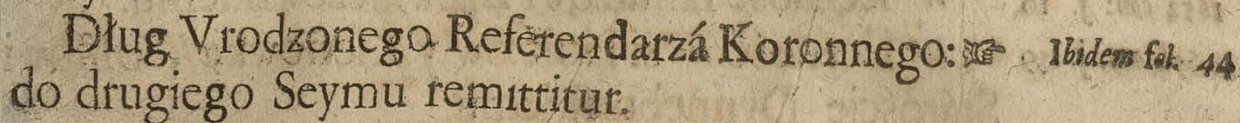 Dług Vrodzonego Referendarzá Koronnego: ☞ Ibidem fol. 44
do drugiego Seymu remittitur.